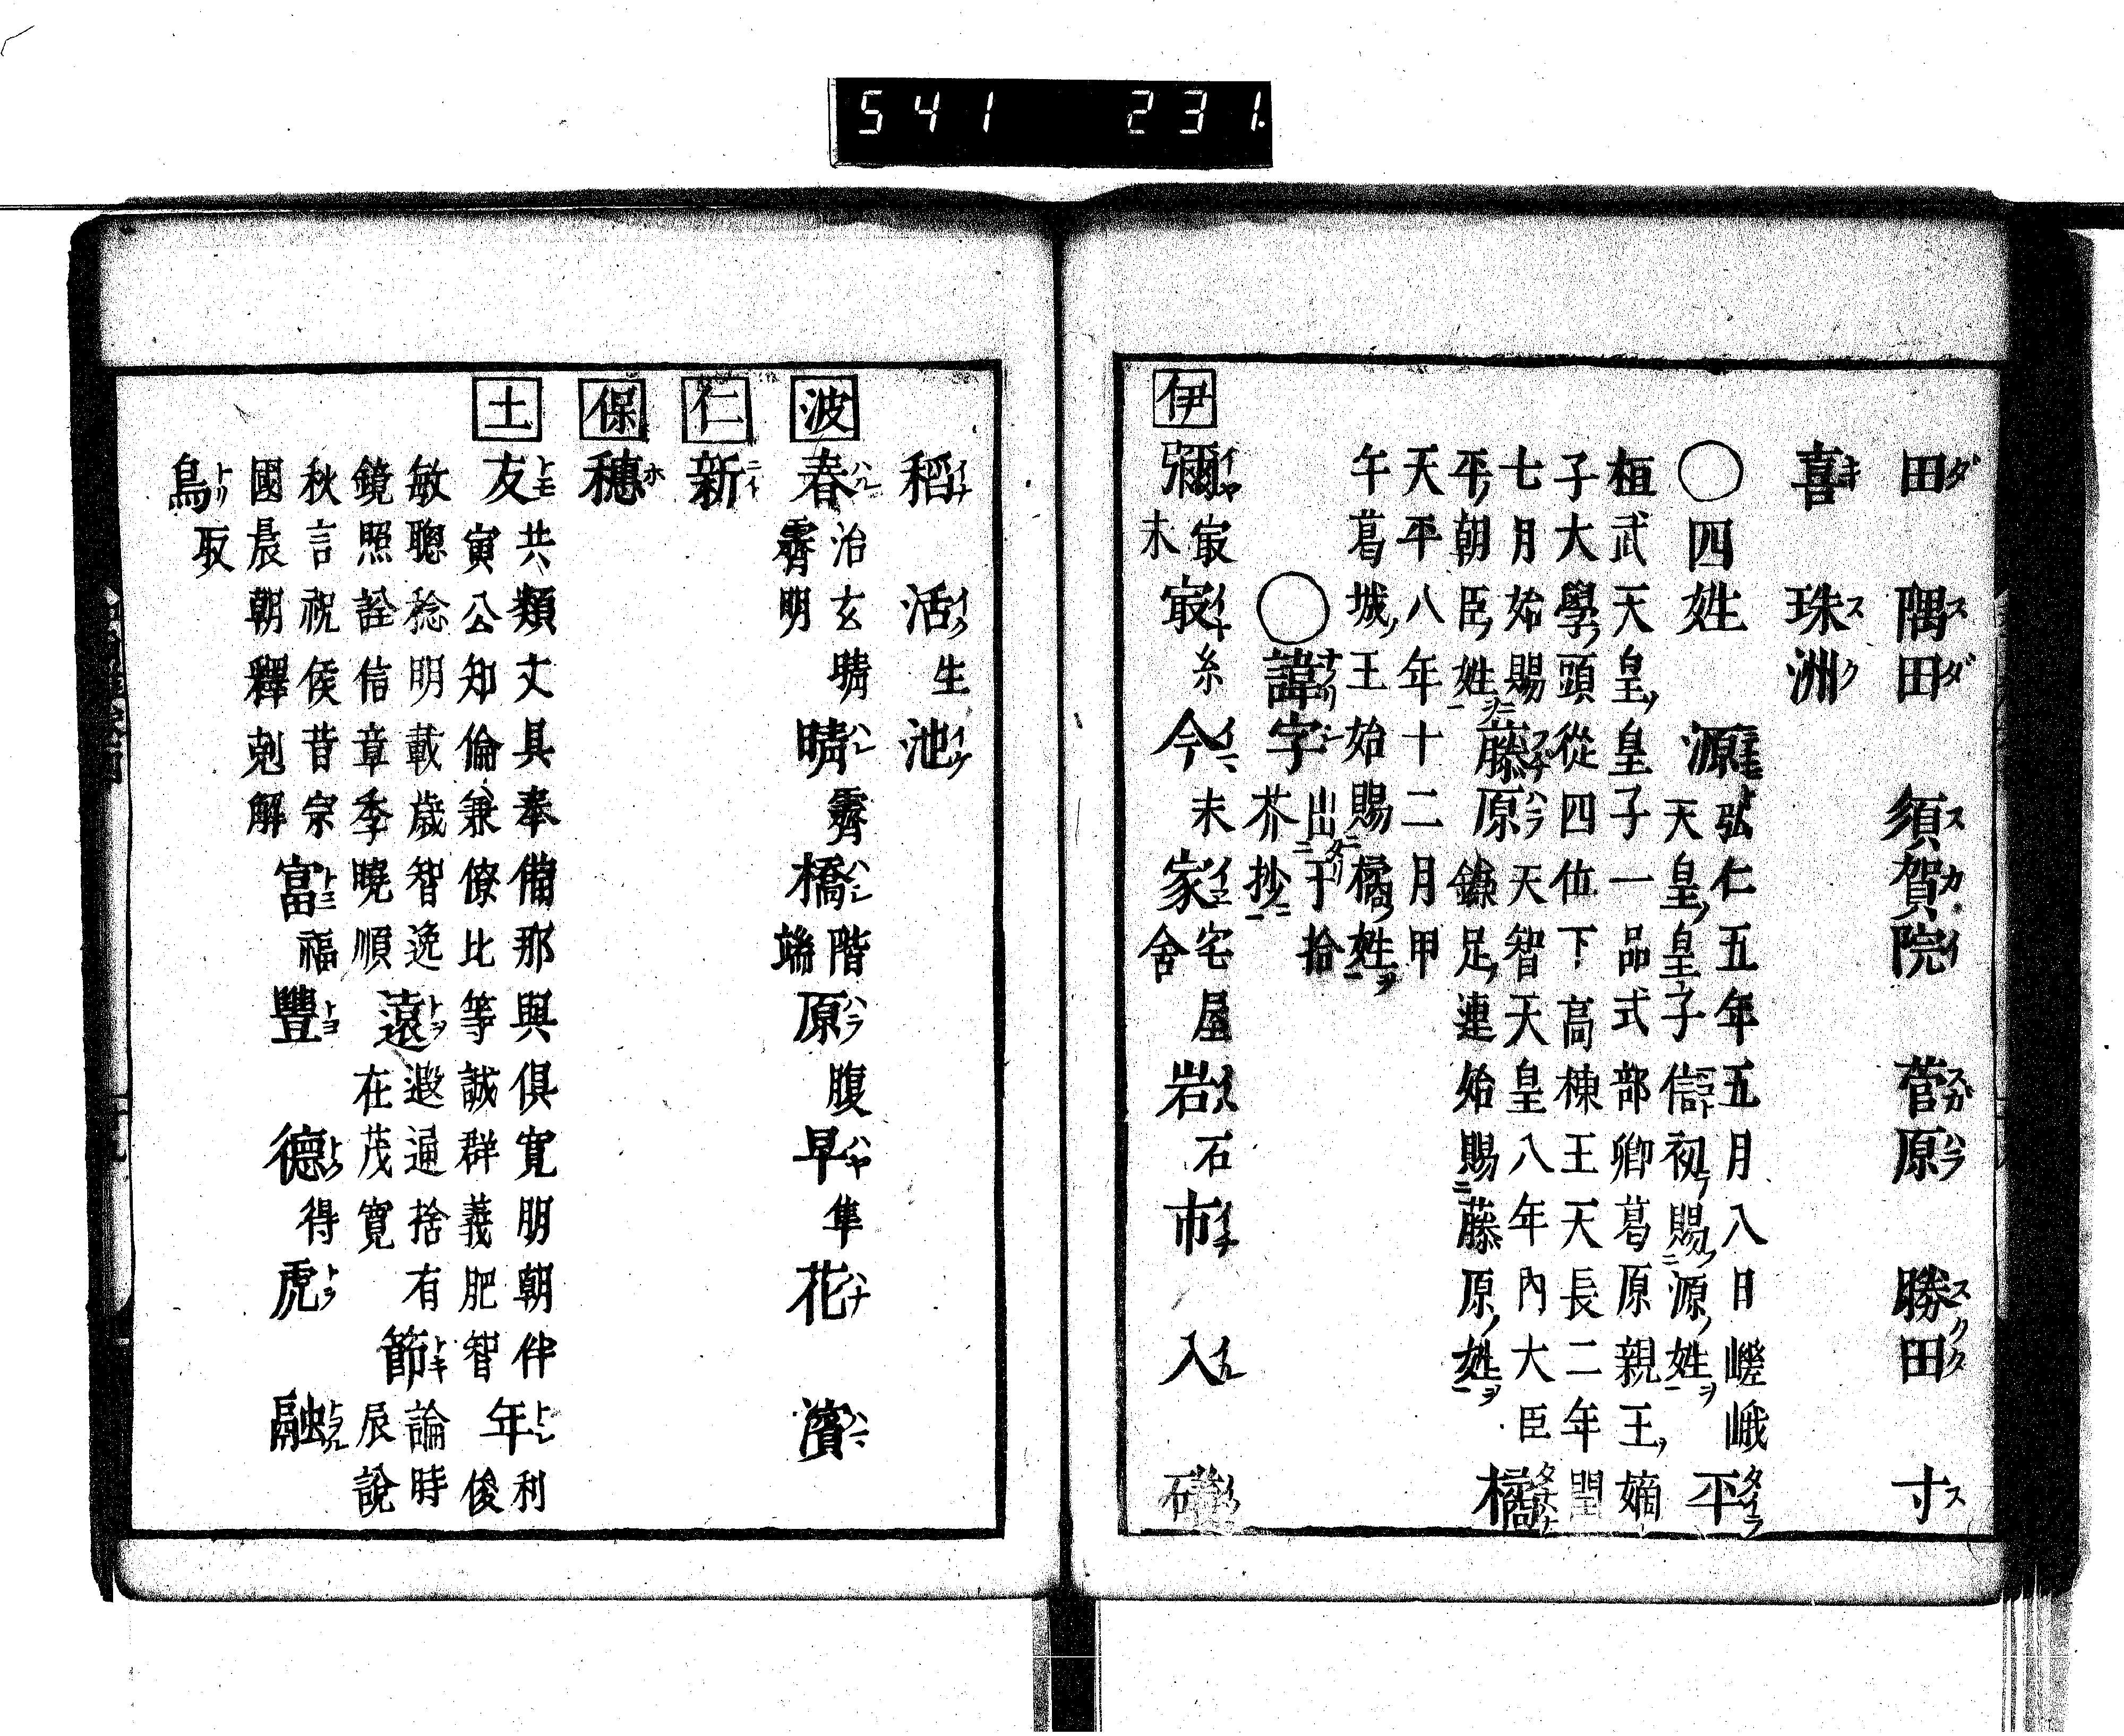 541 231.
田 隅田 須賀院 菅原 勝田 寸
喜 珠洲
○四姓 源 弘仁五年五月八日嵯峨
天皇皇子信初賜源姓 平
桓武天皇皇子一品式部卿葛原親王嫡
子大學頭從四位下高棟王天長二年閏
七月始賜
平朝臣姓 藤原 天智天皇八年內大臣
鎌足連始賜藤原姓 橘
天平八年十二月甲
午葛城王始賜橘姓
○諱字 出于拾
芥抄
伊 彌 㝡木 㝡 糸 今 未 家 宅屋舍 岩 石 市 入
稻 活 生 池
波 春 治玄晴
霽明 晴 霽 橋 階端 原 腹 早 隼 花 濱
仁 新
保 穗
土 友 共類丈具奉備那與俱寛朋朝伴
寅公知倫兼僚比等誠群義肥智 年 利俊
敏聰稔明載歳智逸
鏡照詮信章季曉順 遠 遐逼捨有
在茂寬 節 論時
辰說
秋言祝侯昔宗
國晨朝釋剋解 富 福 豐 德 得 虎 融
鳥 取